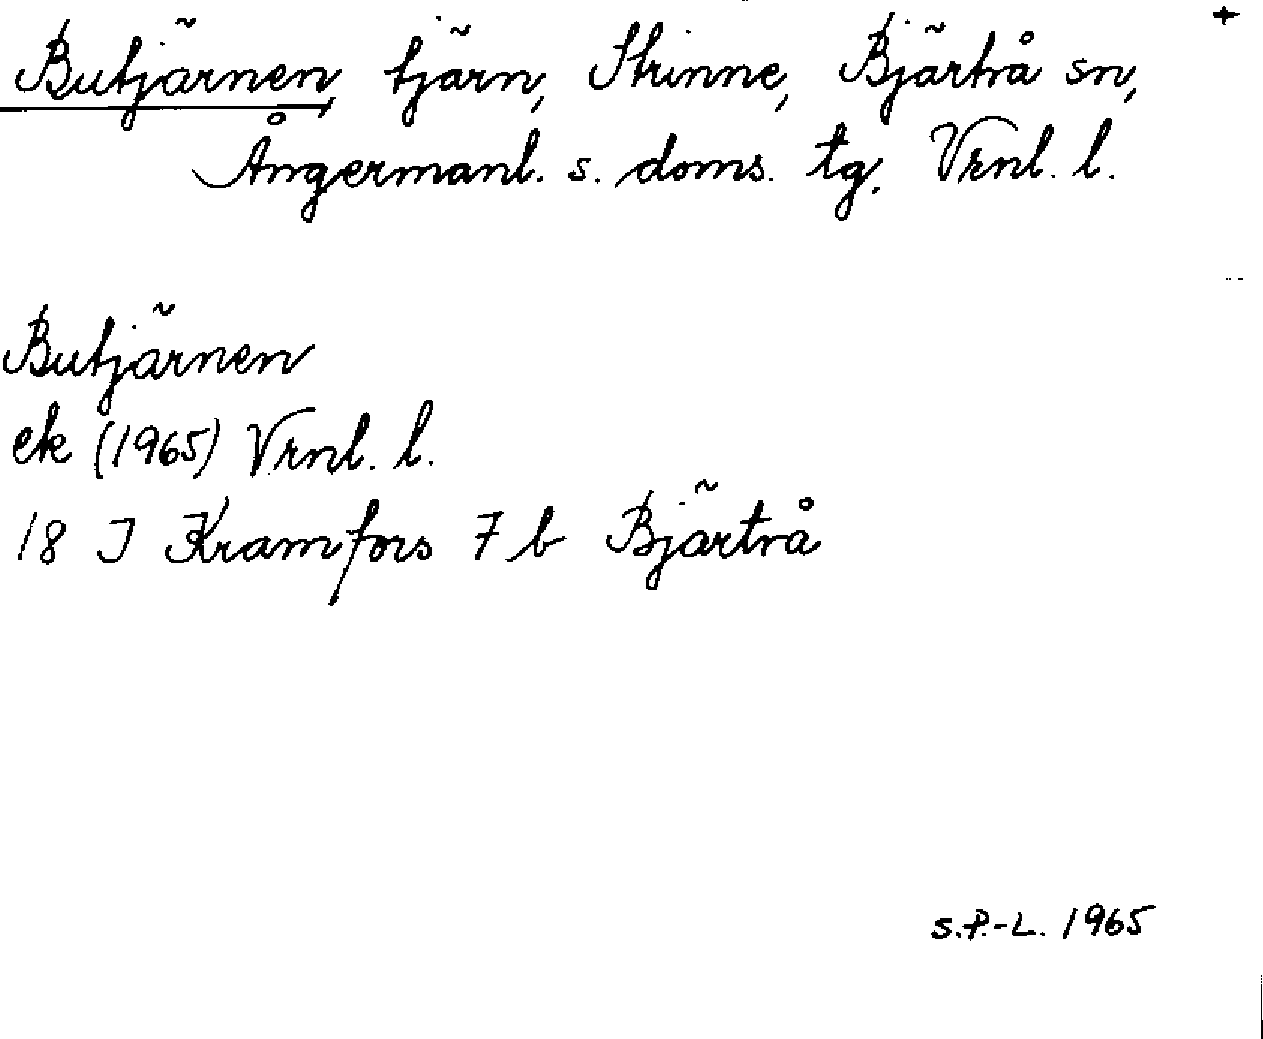 Butjärnen, tjärn, Strinne, Bjärtrå sn,
Ångermanl. s. doms. tg. Vrnl. l.
Butjärnen
ek (1965) Vrnl. l.
18 J Kramfors 7 b Bjärtrå
S.P.-L. 1965